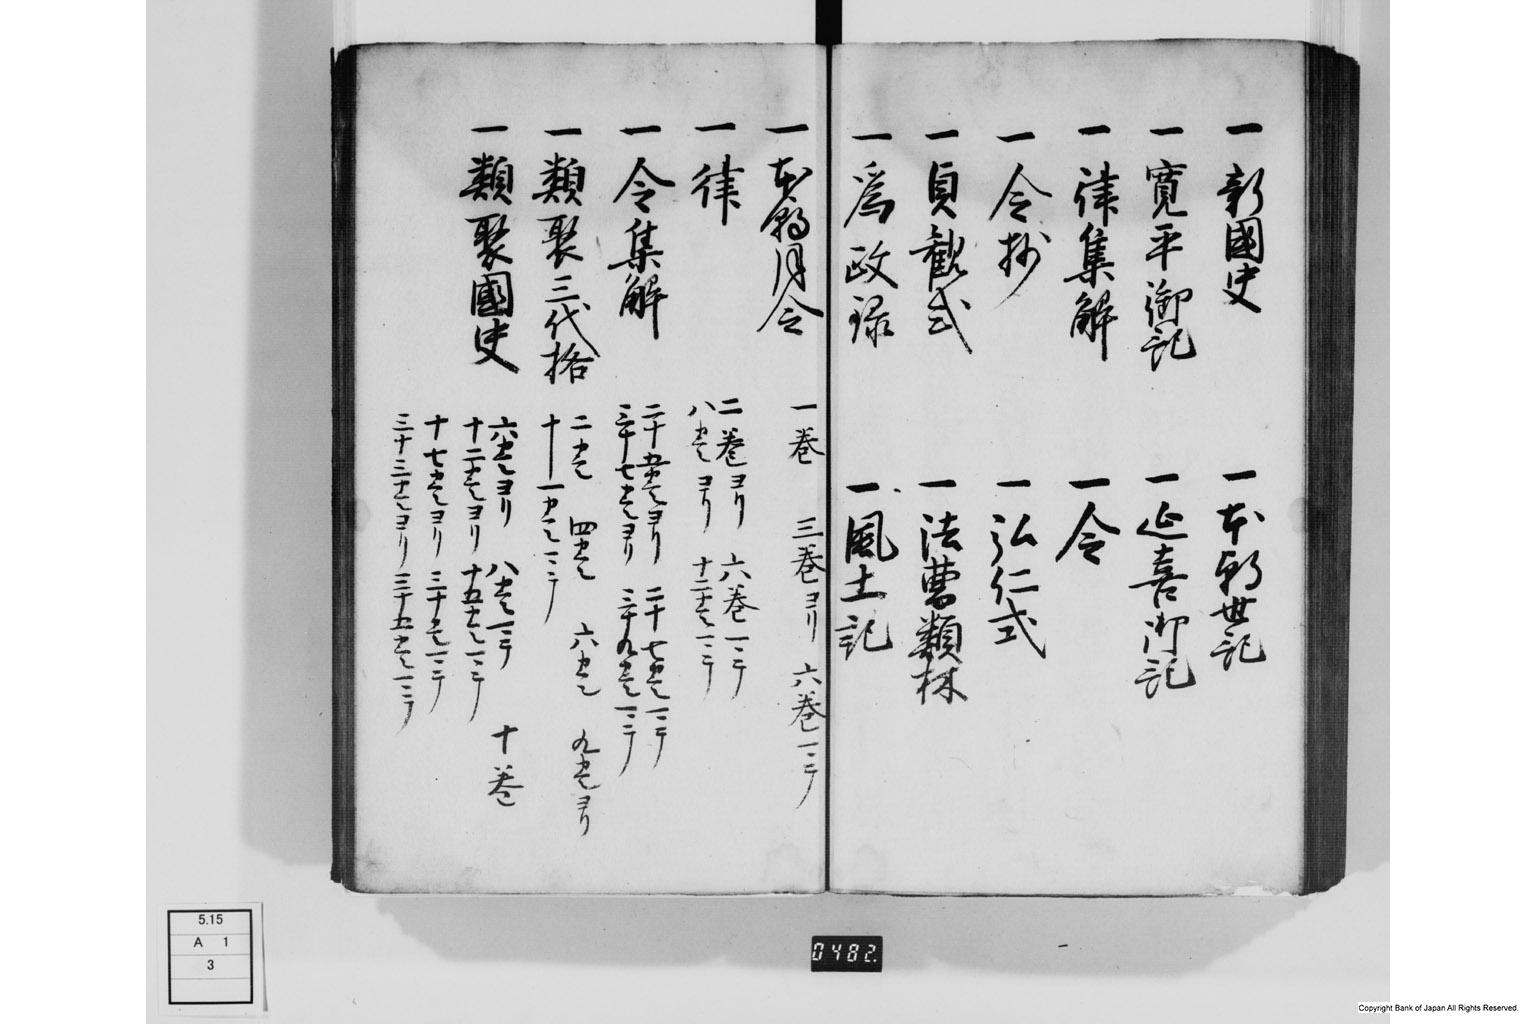 一新國史
一本朝世記
一寛平御記
一延喜御記
一律集解
一令
一令抄
一弘仁式
一貞観式
一法曹類林
一為政録
一風土記
一本朝月令 一巻 三巻ヨリ 六巻一二テ
一律 二巻ヨリ 六巻一二テ
八巻ヨリ 十二巻一二テ
一令集解 二十五巻ヨリ 二十七巻一二テ
三十七巻ヨリ 三十九巻一二テ
一類聚三代格 二巻 四巻 六巻 九巻ヨリ
十一巻一二テ
一類聚國史 六巻ヨリ 八巻一二テ 十巻
十二巻ヨリ 十五巻一二テ
十七巻ヨリ 二十巻一二テ
三十三巻ヨリ 三十五巻一二テ
5.15
A 1
3
0482.
Copyright Bank of Japan All Rights Reserved.